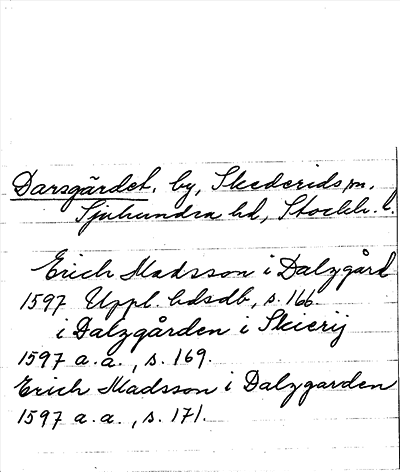 Darsgärdet, by, Skederids sn,
Sjuhundra hd, Stockh. l.
Erich Madsson i Dalzgård
1597 Uppl. hdsdb, s. 166.
i Dalzgården i Skierij
1597 a.a., s. 169.
Erich Madsson i Dalzgarden
1597 a.a., s. 171.